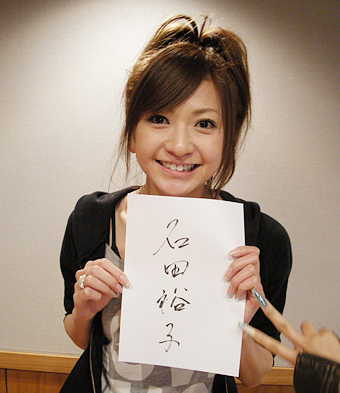 石田裕子